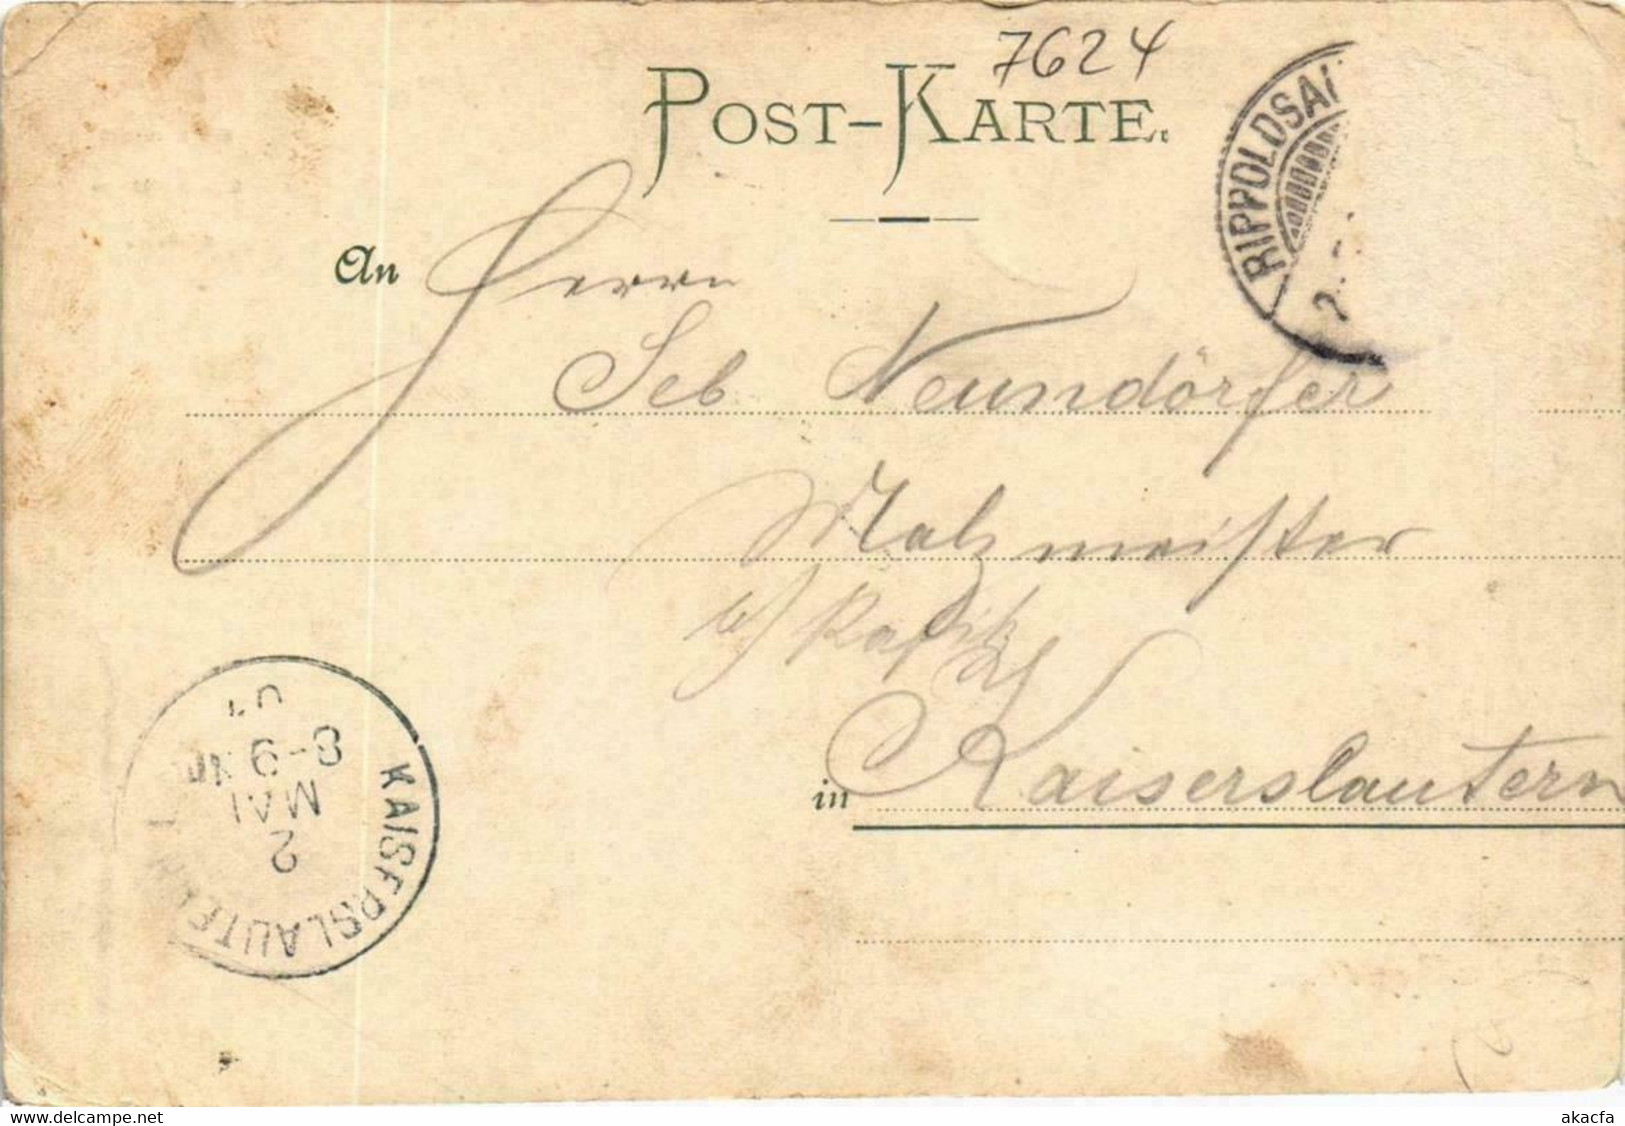 7624
POST-KARTE.
RIPPOLDSAU
An Herrn
Seb Neundörfer
Malzmeister
in Kaiserslautern
KAISERSLAUTERN
2
MAI
8-9 Nm
01
delcampe.net
akacfa